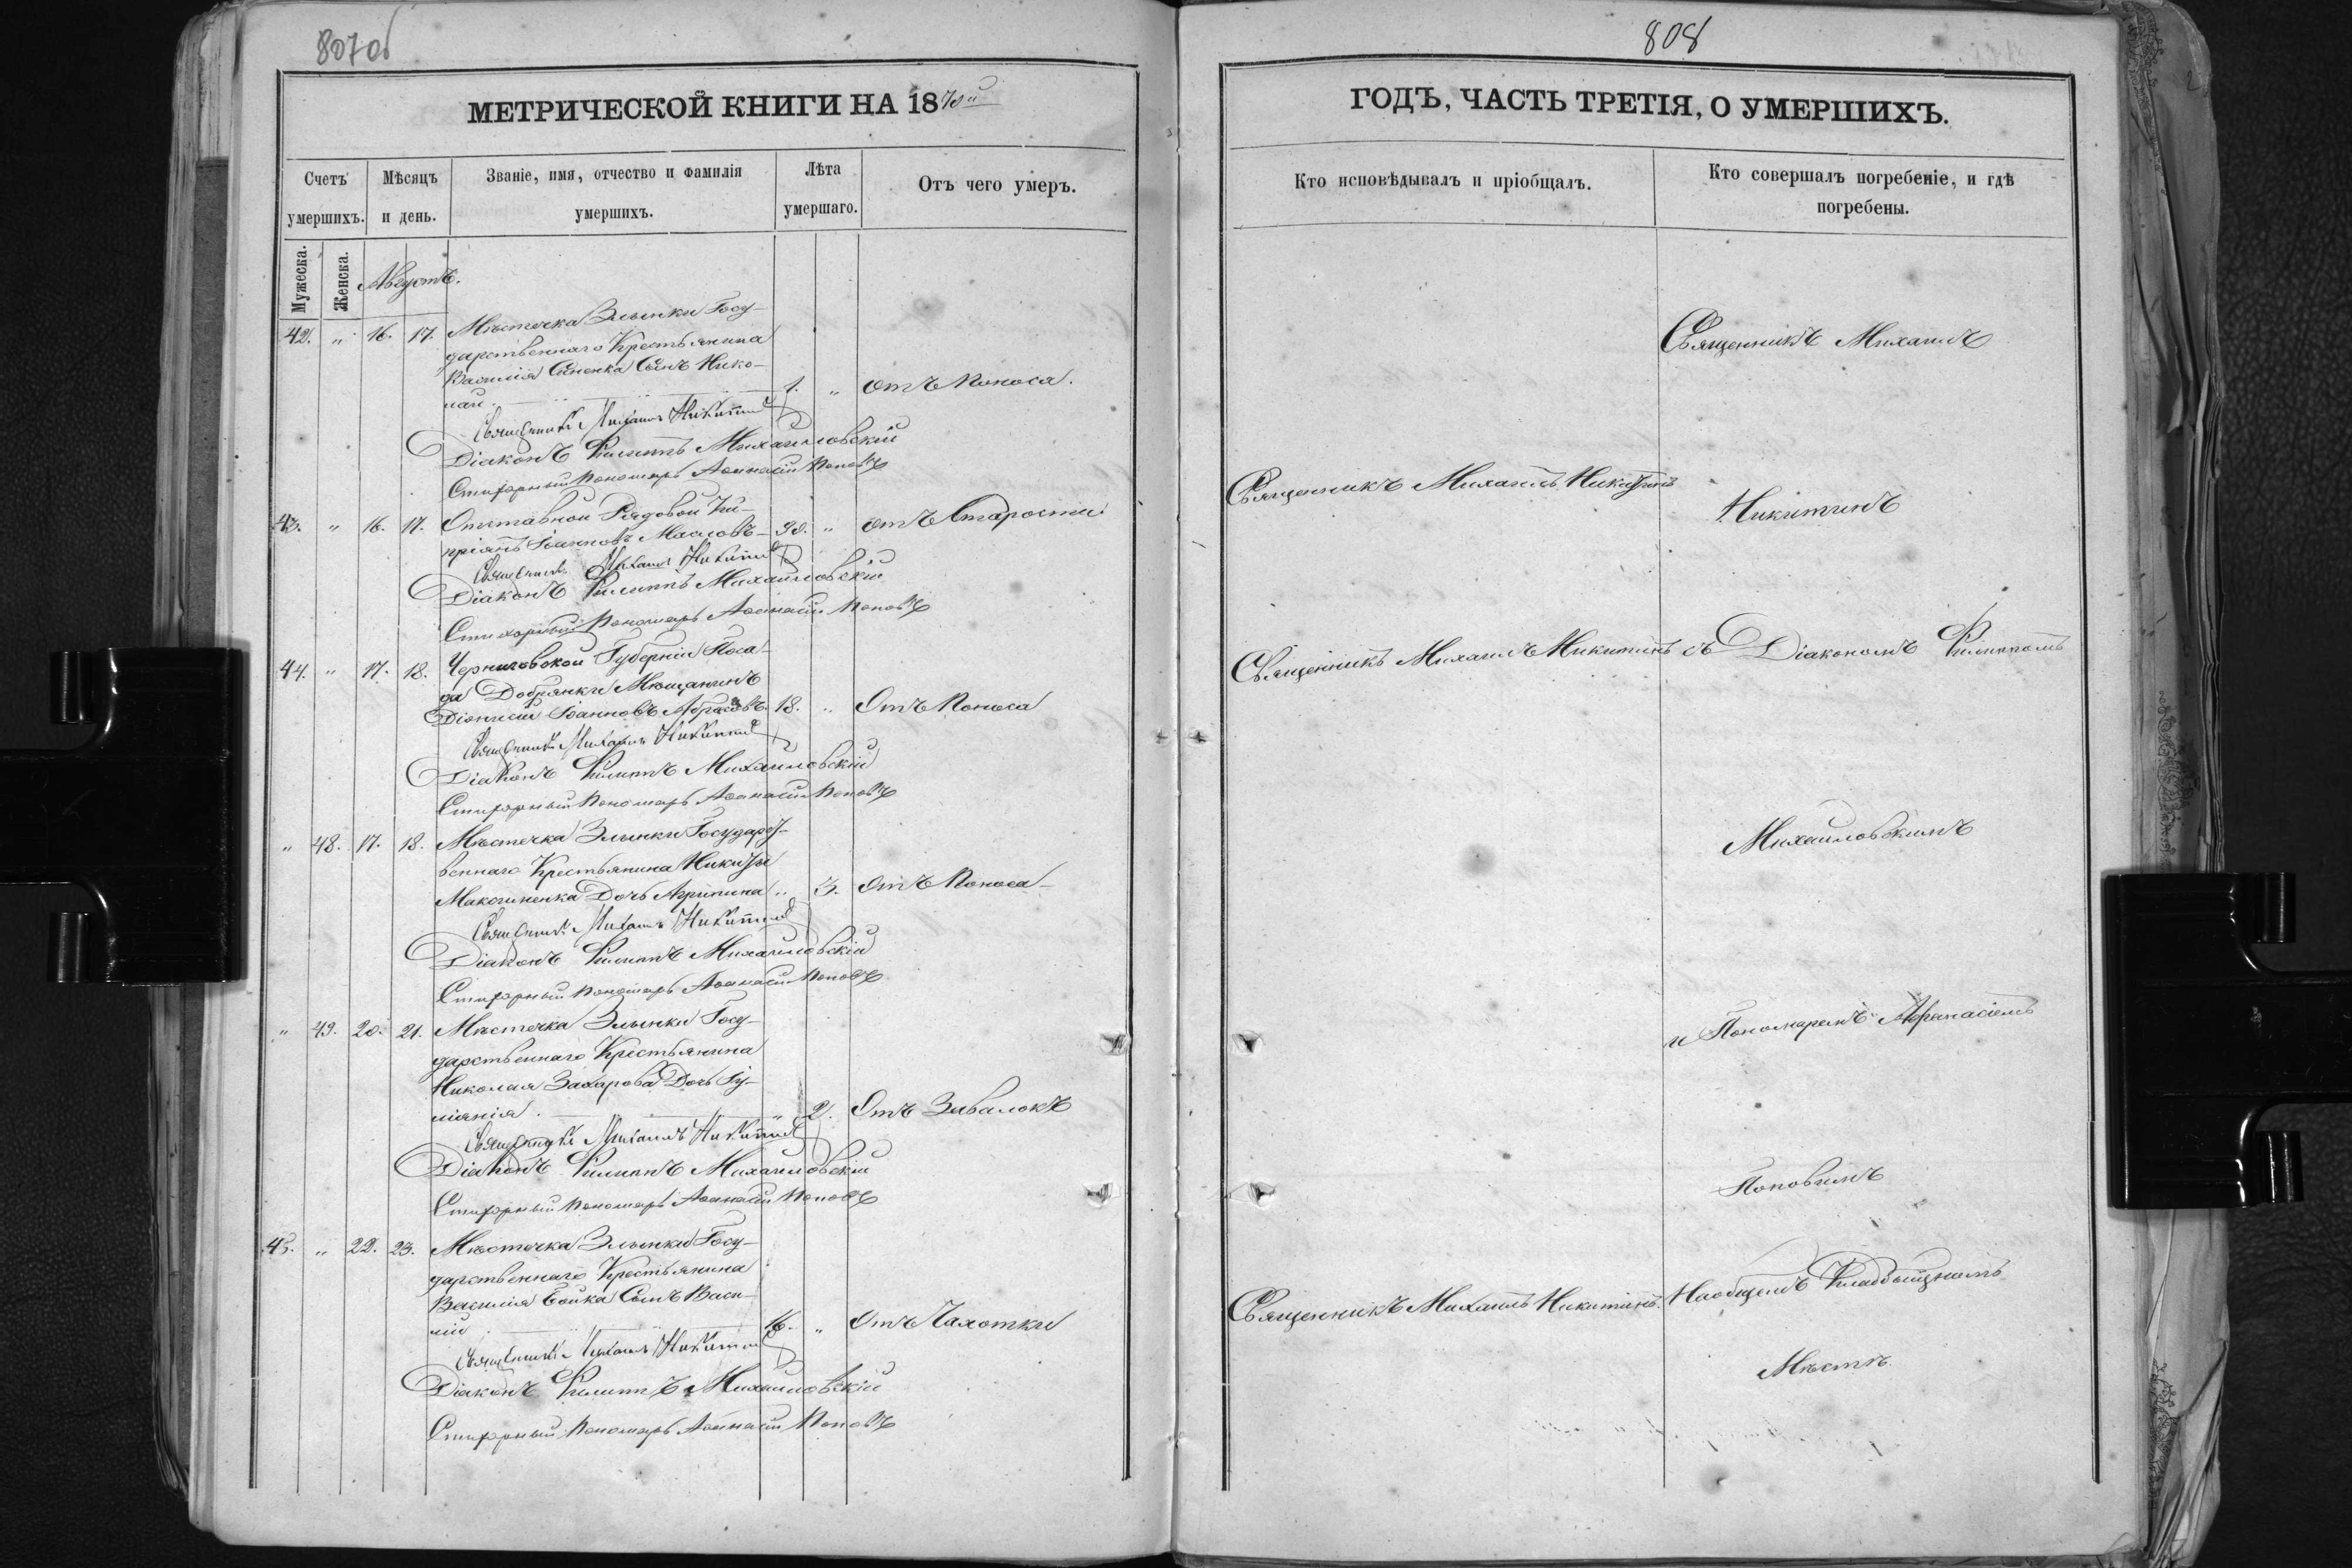 807об
МЕТРИЧЕСКОЙ КНИГИ НА 1870й
Счетъ умершихъ.
Мѣсяцъ и день.
Званіе, имя, отчество и фамилія умершихъ.
Лѣта умершаго.
Отъ чего умеръ.
Мужеска.
Женска.
Августъ.
42. " 16. 17. Мѣстечка Злынки Госу-
дарственнаго Крестьянина
Василія Сынъ Нико-
лай. 1. " отъ Поноса.
Священникъ Михаилъ Никитинъ
Діаконъ Филиппъ Михайловскій
Стихарный Пономарь Аѳанасій Поповъ
43. " 16. 17. Отставной Рядовой Ки-
пріянъ Іоанновъ Масловъ 90. " отъ Старости
Священникъ Михаилъ Никитинъ
Діаконъ Филиппъ Михайловскій
Стихарный Пономарь Аѳанасій Поповъ
44. " 17. 18. Черниговской Губерніи Поса-
да Добрянки Мѣщанинъ
Діонисій Іоанновъ 18. " Отъ Поноса
Священникъ Михаилъ Никитинъ
Діаконъ Филиппъ Михайловскій
Стихарный Пономарь Аѳанасій Поповъ
" 48. 17. 18. Мѣстечка Злынки Государст-
веннаго Крестьянина Никиты
Дочь Агрипина " 3. Отъ Поноса
Священникъ Михаилъ Никитинъ
Діаконъ Филиппъ Михайловскій
Стихарный Пономарь Аѳанасій Поповъ
" 49. 20. 21. Мѣстечка Злынки Госу-
дарственнаго Крестьянина
Николая Захарова Дочь Іу-
ліанія. " 2. Отъ Завалокъ
Священникъ Михаилъ Никитинъ
Діаконъ Филиппъ Михайловскій
Стихарный Пономарь Аѳанасій Поповъ
45. " 22. 23. Мѣстечка Злынки Госу-
дарственнаго Крестьянина
Василія Бойка Сынъ Васи-
лій 16. " Отъ Чахотки
Священникъ Михаилъ Никитинъ
Діаконъ Филиппъ Михайловскій
Стихарный Пономарь Аѳанасій Поповъ
808
ГОДЪ, ЧАСТЬ ТРЕТІЯ, О УМЕРШИХЪ.
Кто исповѣдывалъ и пріобщалъ.
Кто совершалъ погребеніе, и гдѣ
погребены.
Священникъ Михаилъ
Священникъ Михаилъ Никитинъ
Никитинъ
Священникъ Михаилъ Никитинъ
съ Діакономъ Филиппомъ
Михайловскимъ
и Пономаремъ Афанасіемъ
Поповымъ
Священникъ Михаилъ Никитинъ.
На общемъ Кладбищномъ
Мѣстѣ.